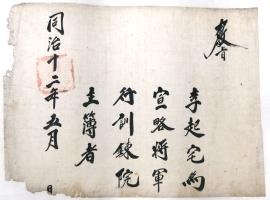 教旨
李起宅為
宣略將軍
行訓鍊院
主簿者
同治十二年五月　日